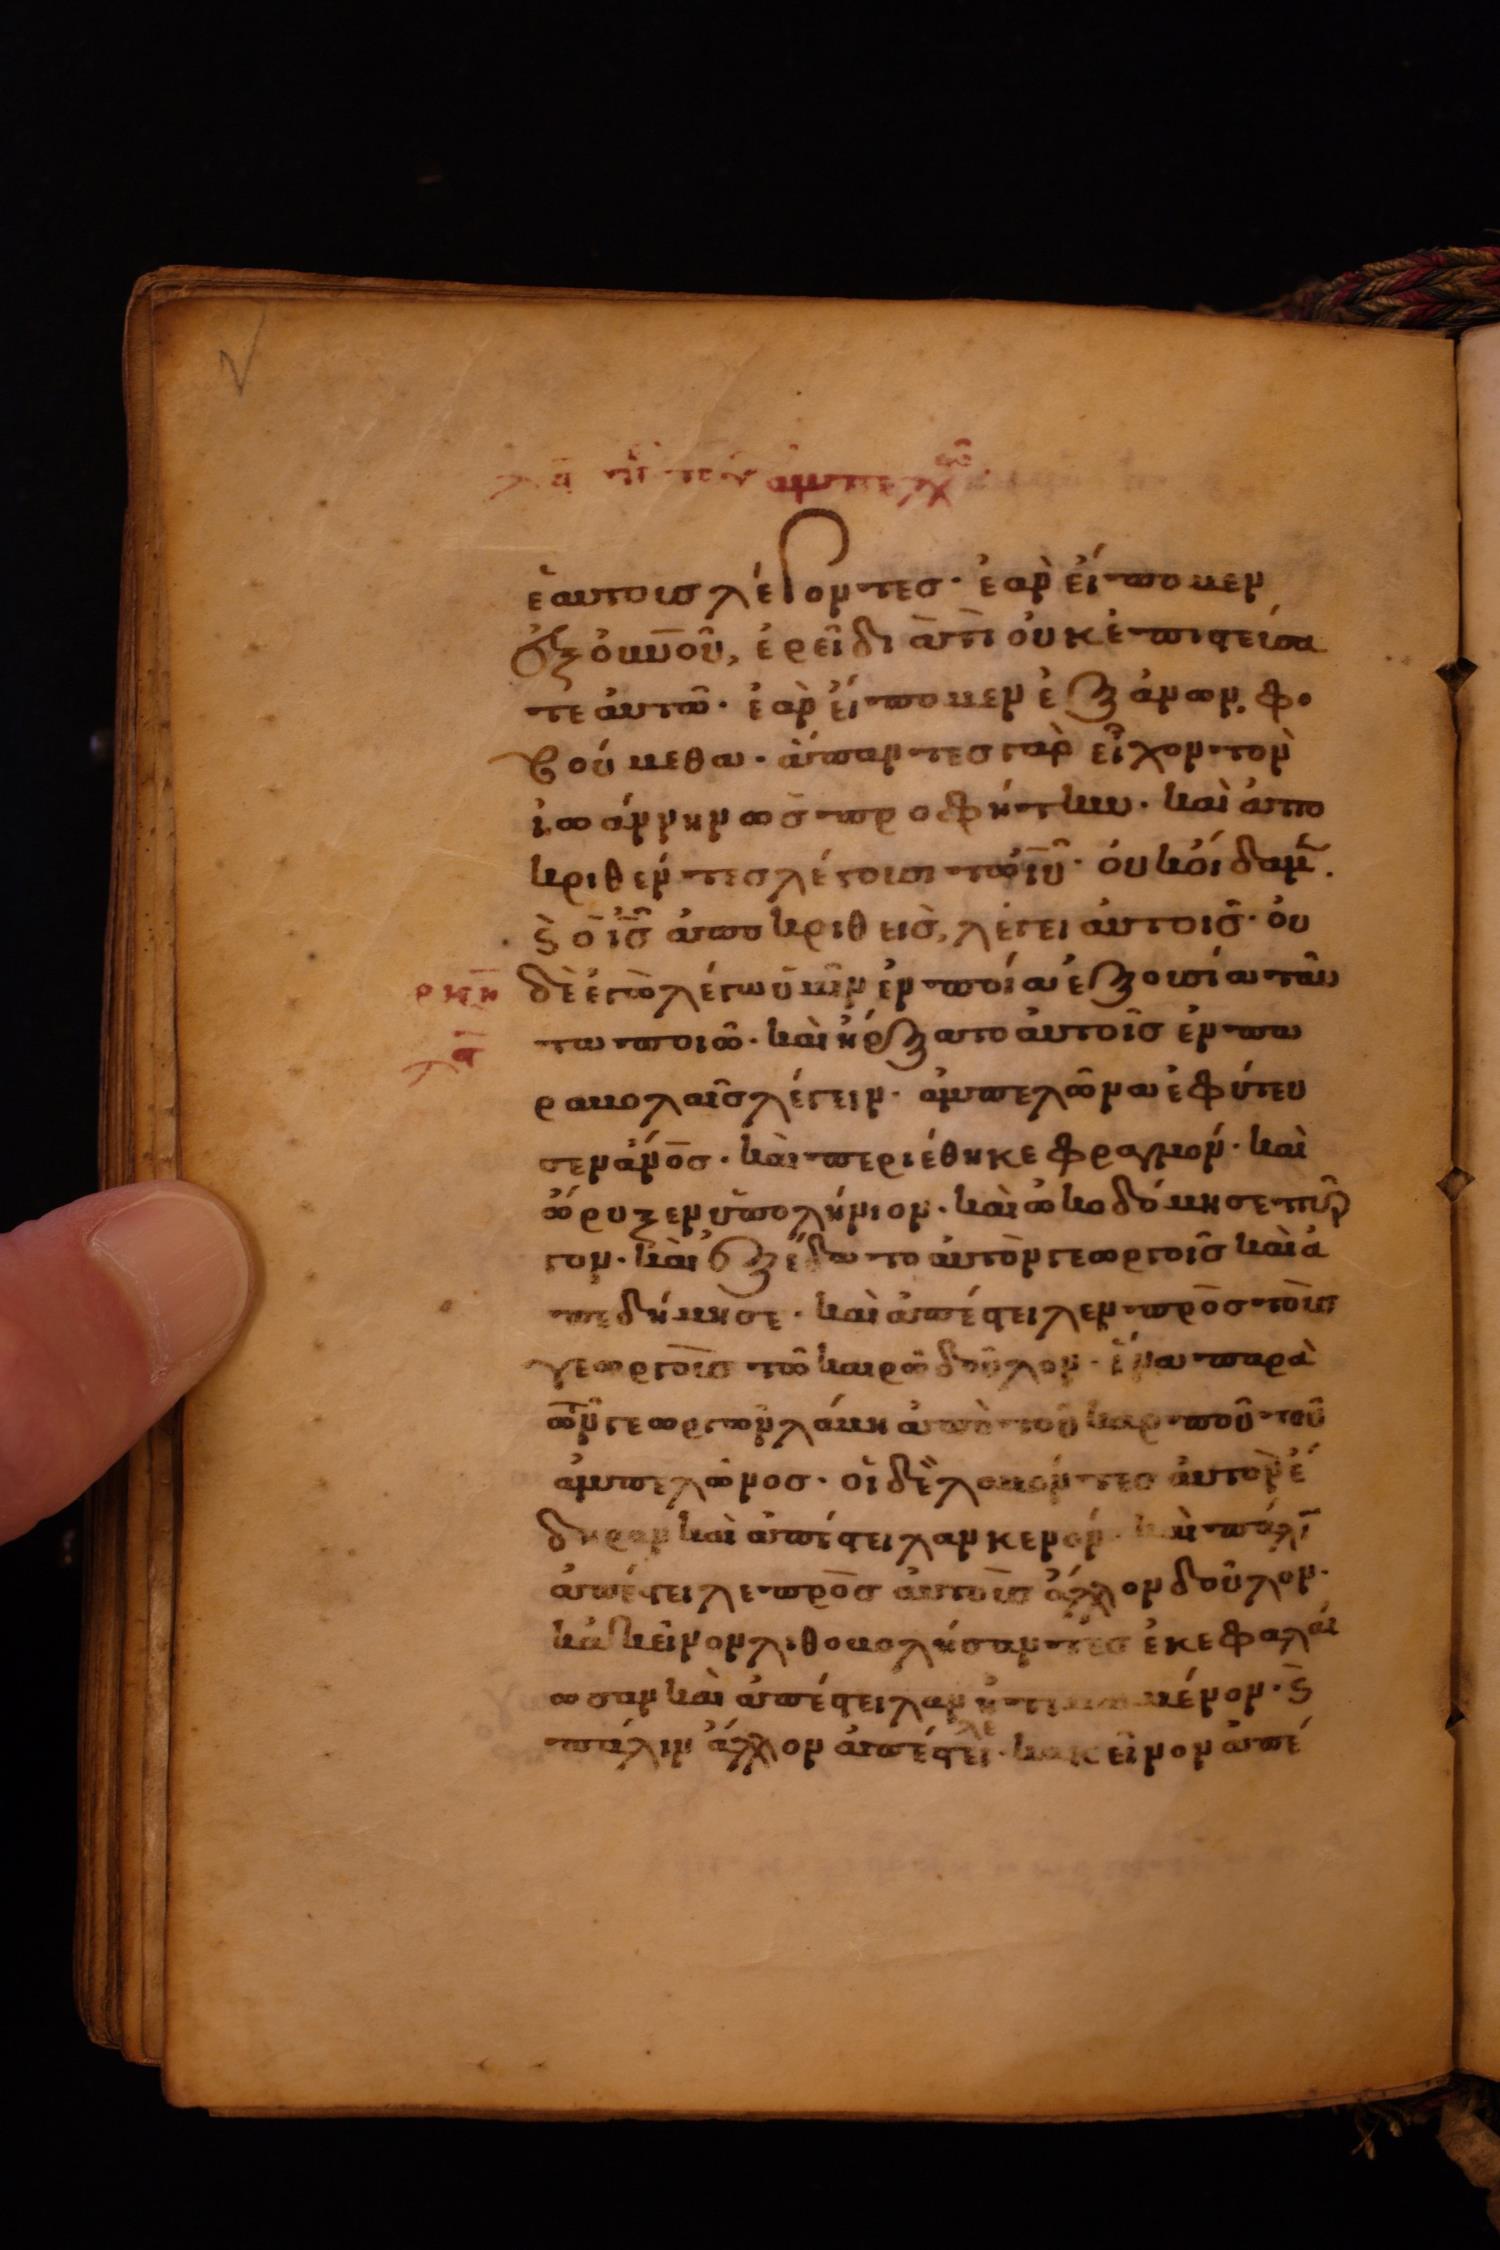 λα πε του αμπελω
ἑαυτοισ λέγοντεσ· ἐὰν εἴπομεν
ἐξ ὀυνοῦ, ἐρεῖ διατι ὀυκ ἐπιστεύσα
τε ἀυτῶ· ἐὰν εἴπομεν ἐξ ἀνων, φο
βούμεθα· ἅπαντεσ γὰρ εἶχον τὸν
ἰωάννην ωσ προφήτην· καὶ ἀπο
κριθέντεσ λέγουσι τῶ ιῦ· ὀυκ οἴδαμ.
ϗ ὁ ισ ἀποκριθεισ, λέγει ἀυτοισ· ὀυ
δὲ ἐγὼ λέγω ὑμῖν ἐν ποία ἐξουσία ταῦ
ρκη
τα ποιῶ· καὶ ἤρξατο ἀυτοῖσ ἐν πα
λα
ραβολαῖσ λέγειν· ἀμπελῶνα ἐφύτευ
σεν ἀνοσ· καὶ περιέθηκε φραγμόν· καὶ
ὤρυξεν ὑπολήνιον· καὶ ὠκοδόμησε πύρ
γον· καὶ ἐξέδατο ἀυτὸν γεωργοῖσ καὶ ἀ
πεδήμησε· καὶ ἀπέστειλεν πρὸσ τοὺσ
γεωργοὺσ τῶ καιρῶ δοῦλον· ἵνα παρὰ
τῶν γεωργῶν λάβη ἀπὸ τοῦ καρποῦ τοῦ
ἀμπελῶνοσ· οἱ δὲ λαβόντεσ ἀυτὸν ἔ
δηραν καὶ ἀπέστειλαν κενόν· καὶ πάλι
ἀπέστειλε πρὸσ ἀυτοὺσ ἄλλον δοῦλον·
κἀκεῖνον λιθοβολήσαντεσ ἐκεφαλαί
ωσαν καὶ ἀπέστειλαν ἠτιμωμένον· ϗ
πάλιν ἄλλον ἀπέστειλε· κακεῖνον ἀπέ